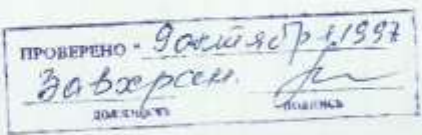 ПРОВЕРЕНО - 9 октября 1997
Завхерсен.
должность подпись